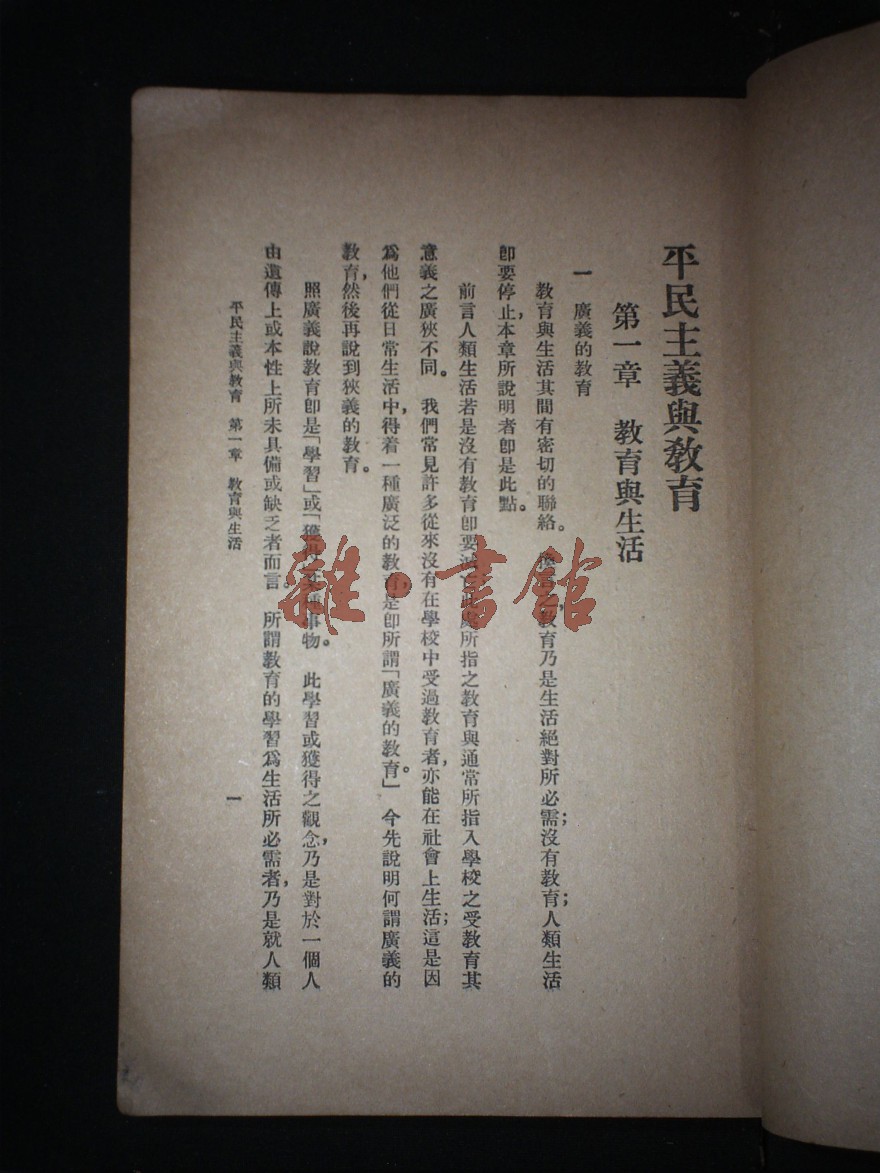 平民主義與教育
第一章　教育與生活
一　廣義的教育
教育與生活其間有密切的聯絡。　教育乃是生活絕對所必需；沒有教育，人類生活
卽要停止，本章所說明者卽是此點。
前言人類生活若是沒有教育卽要滅亡，此處所指之教育與通常所指入學校之受教育其
意義之廣狹不同。　我們常見許多從來沒有在學校中受過教育者，亦能在社會上生活；這是因
爲他們從日常生活中，得着一種廣泛的教育，是卽所謂「廣義的教育。」　今先說明何謂廣義的
教育，然後再說到狹義的教育。
照廣義說教育卽是「學習」或「獲得」事物。　此學習或獲得之觀念，乃是對於一個人
由遺傳上或本性上所未具備或缺乏者而言。　所謂教育的學習爲生活所必需者，乃是就人類
平民主義與教育　第一章　教育與生活
一
雜·書館